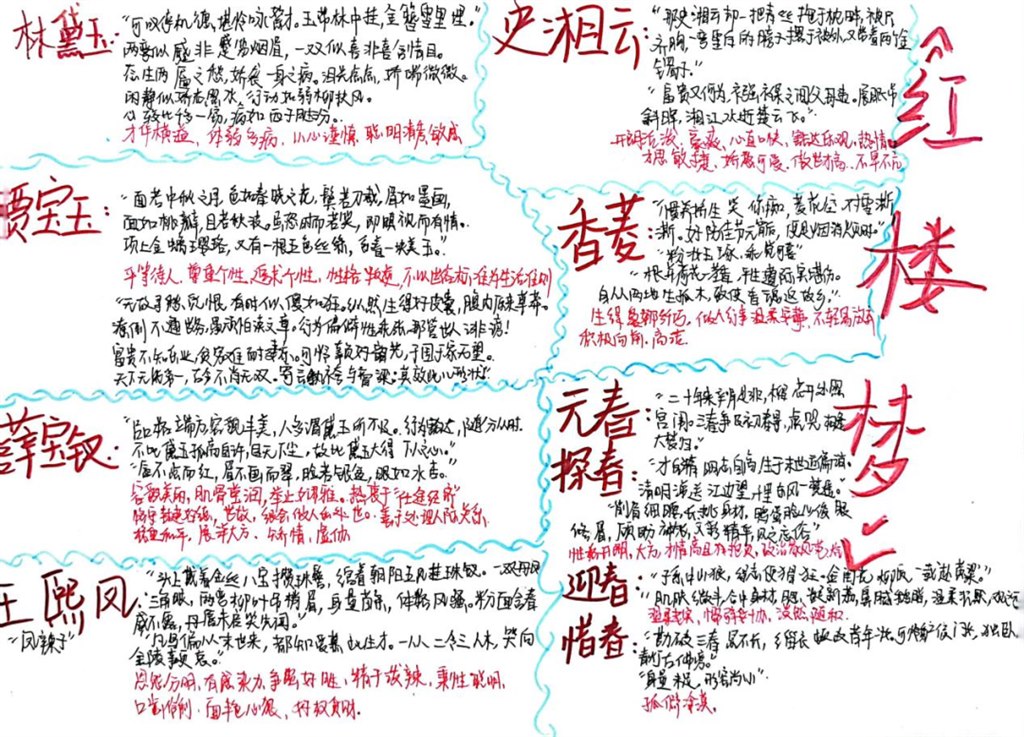 林黛玉:
"可叹停机德,堪怜咏絮才。玉带林中挂,金簪雪里埋。
两弯似蹙非蹙罥烟眉,一双似喜非喜含情目。
态生两靥之愁,娇袭一身之病。泪光点点,娇喘微微。
闲静似娇花照水,行动如弱柳扶风。
心较比干多一窍,病如西子胜三分。
才华横溢,体弱多病,小心谨慎,聪明清秀敏感
贾宝玉:
"面若中秋之月,色如春晓之花,鬓若刀裁,眉如墨画,
面如桃瓣,目若秋波。虽怒时而若笑,即瞋视而有情。
项上金螭璎珞,又有一根五色丝绦,系着一块美玉。"
平等待人,尊重个性,追求个性,
"无故寻愁觅恨,有时似傻如狂。纵然生得好皮囊,腹内原来草莽。
潦倒不通世务,愚顽怕读文章。行为偏僻性乖张,那管世人诽谤!
富贵不知乐业,贫穷难耐凄凉。可怜辜负好韶光,于国于家无望。
天下无能第一,古今不肖无双。寄言纨绔与膏粱:莫效此儿形状!"
薛宝钗
"品格端方,容貌丰美,人多谓黛玉所不及。行为豁达,随分从时。
不比黛玉孤高自许,目无下尘,故比黛玉大得下人之心。"
"唇不点而红,眉不画而翠,脸若银盆,眼如水杏。"
容貌美丽,肌骨莹润,举止娴雅。热衷于"仕途经济"
善于处理人际关系。
展洋大方
王熙凤
"凤辣子"
"头上戴着金丝八宝攒珠髻,绾着朝阳五凤挂珠钗。一双丹凤
三角眼,两弯柳叶吊梢眉,身量苗条,体格风骚。粉面含春
威不露,丹唇未启笑先闻。"
"凡鸟偏从末世来,都知爱慕此生才。一从二令三人木,哭向
金陵事更哀。"
恩怨分明,有感染力,争强好胜,精于泼辣,秉性聪明,
面艳心狠,好权贪财。
史湘云:
"那史湘云却一把青丝拖于枕畔,被只
齐胸,一弯雪白的膀子撂于被外,又带着两个金
镯子。"
"富贵又何为,襁褓之间父母违。展眼吊
斜晖,湘江水逝楚云飞。"
开朗活泼,豪爽,心直口快,豁达乐观,热情
才思敏捷,娇憨可爱,
香菱
"惯养娇生笑你痴,菱花空对雪澌
澌。好防佳节元宵后,便是烟消火灭时。"
"根并荷花一茎香,平生遭际实堪伤。
自从两地生孤木,致使香魂返故乡。"
生得袅娜纤巧,做人行事温柔安静,
积极向前,高洁
元春
探春:
"二十年来辨是非,榴花开处照
宫闱。三春争及初春景,虎兕相逢
大梦归。"
"才自精明志自高,生于末世运偏消。
清明涕送江边望,千里东风一梦遥。"
"削肩细腰,长挑身材,鸭蛋脸儿,俊眼
修眉,顾盼神飞,文彩精华,见之忘俗"
性格开朗,大方,才情高且有抱负,
迎春:
"子系中山狼,得志便猖狂。金闺花柳质,一载赴黄粱。"
"肌肤微丰,合中身材,腮凝新荔,鼻腻鹅脂,温柔沉默,观之
惜春:
"勘破三春景不长,缁衣顿改昔年妆。可怜绣户侯门女,独卧
青灯古佛旁。"
"身量未足,形容尚小"
孤僻冷漠。
红
楼
梦